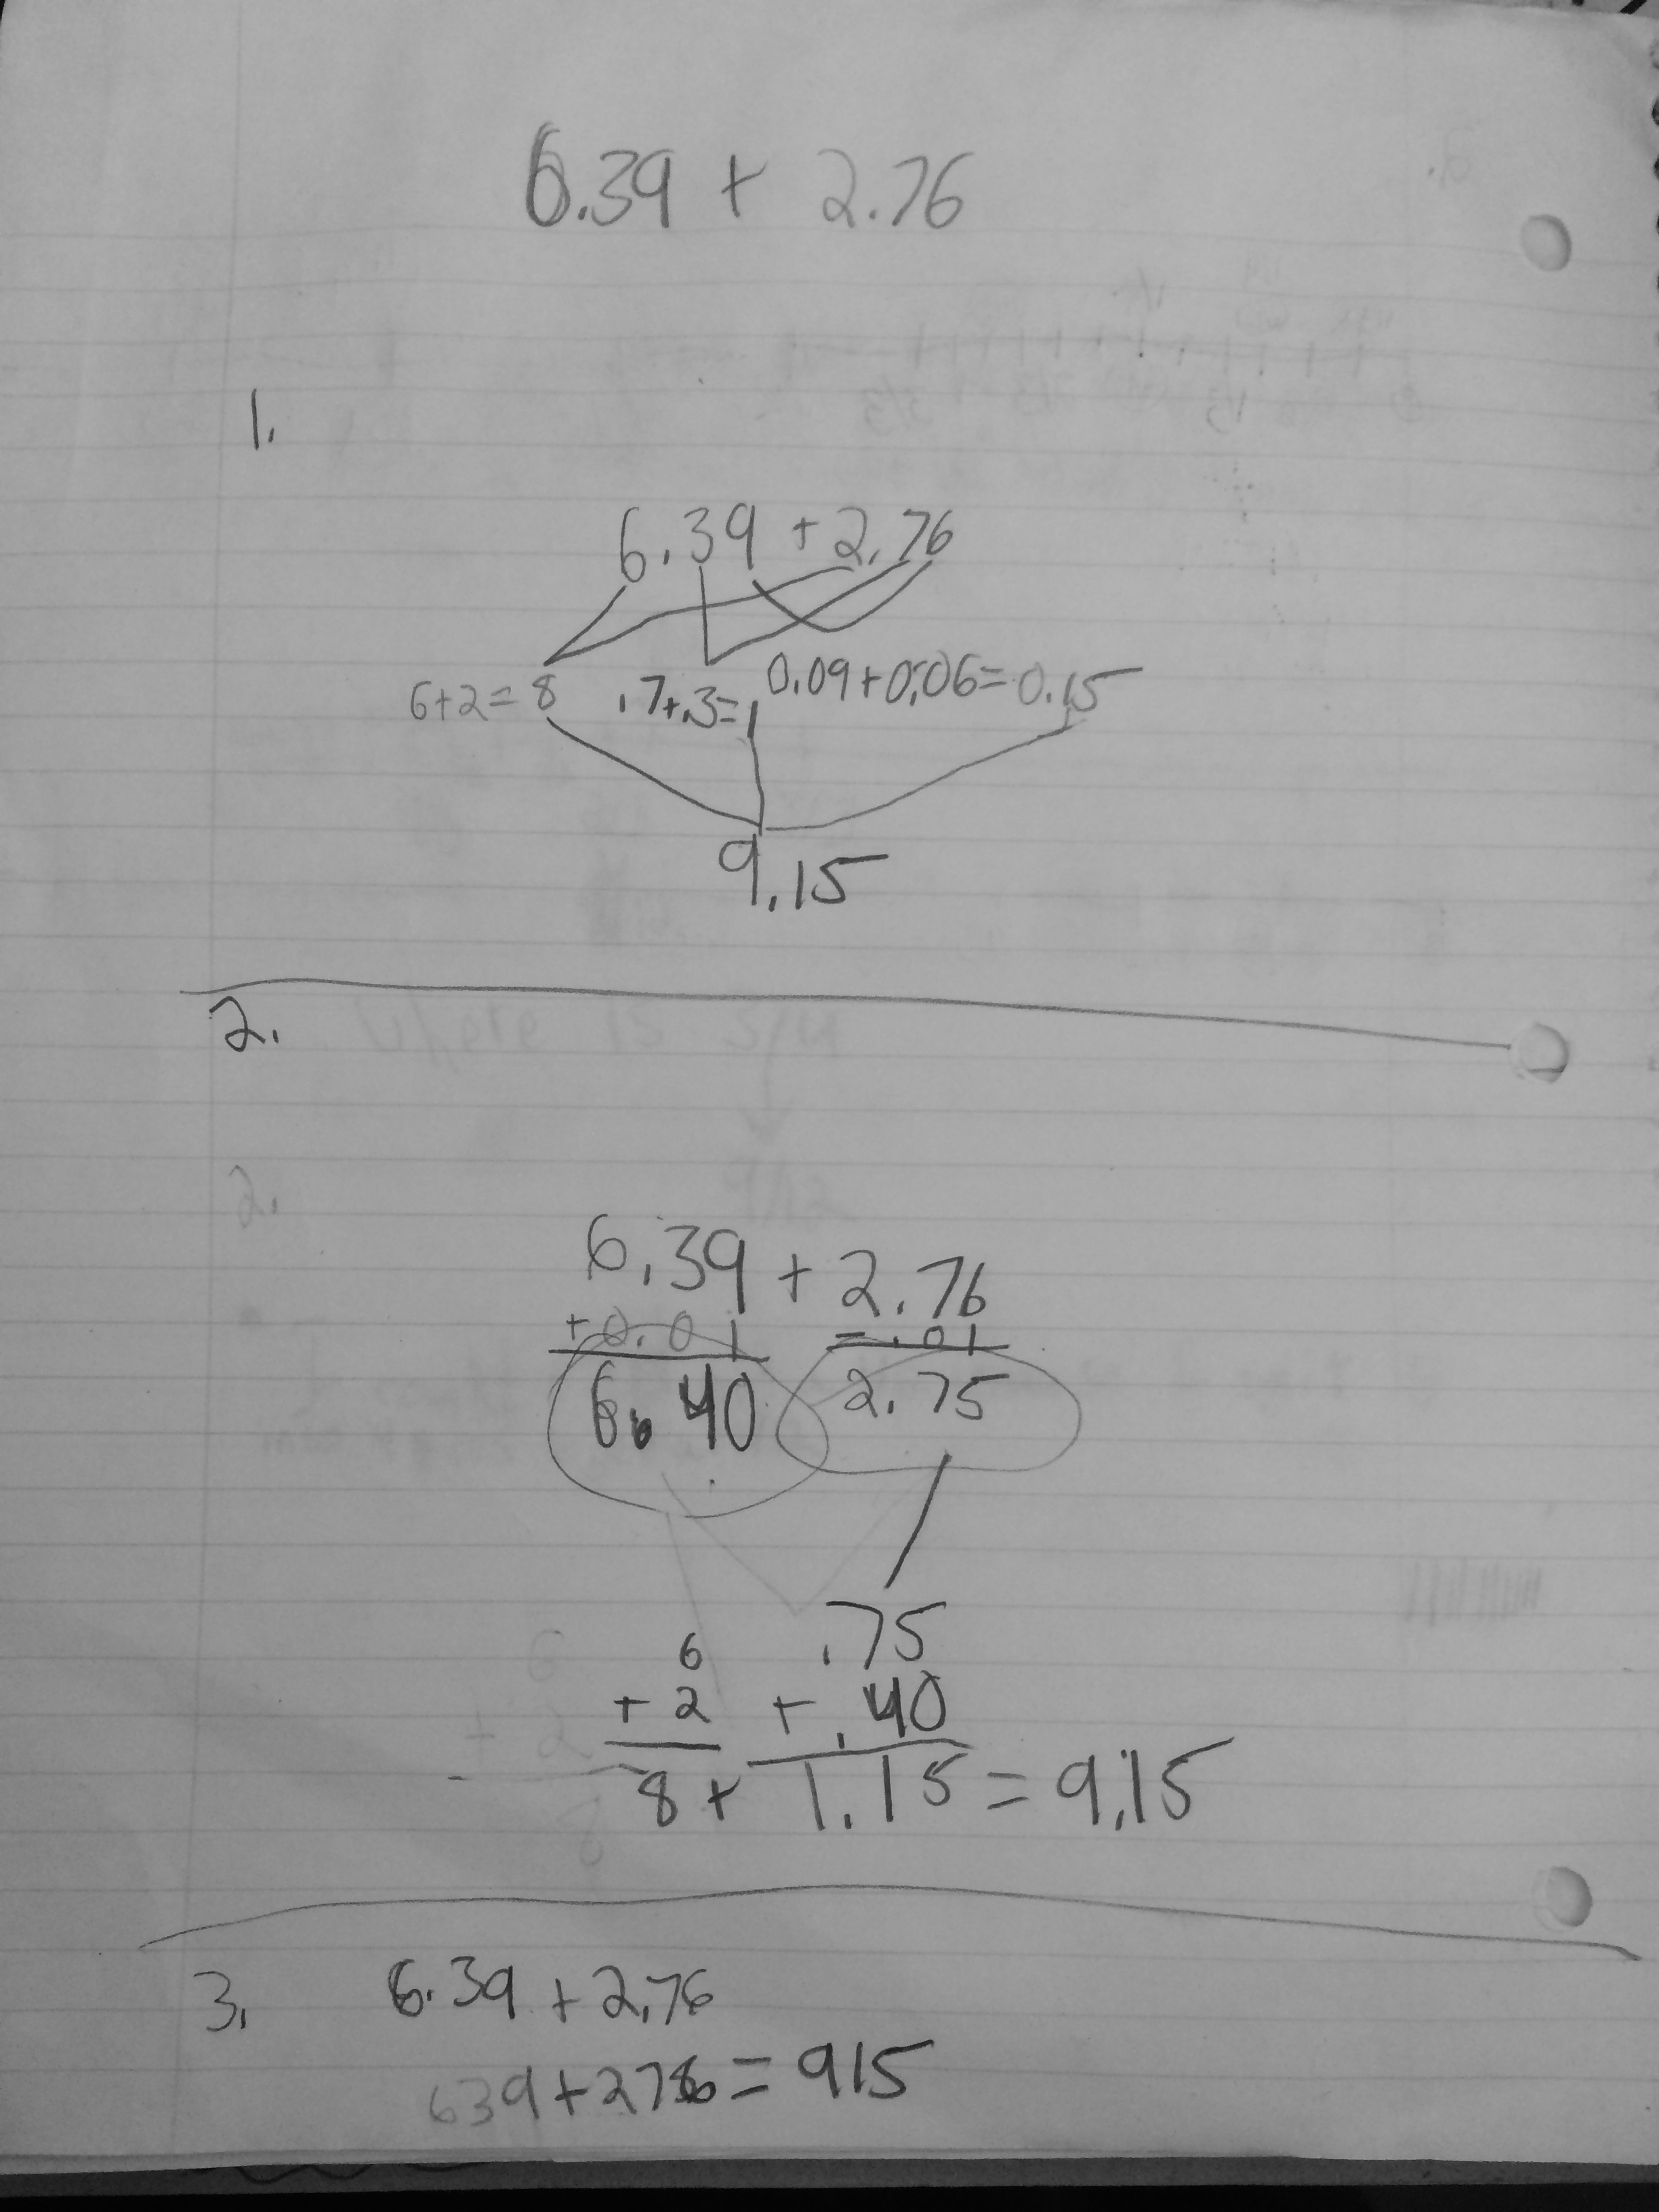 6.39 + 2.76
1.
6.39 + 2.76
6+2=8 .7+.3=1 0.09+0.06=0.15
9.15
2.
6.39 + 2.76
+0.01 -.01
6.40 2.75
6 .75
+2 +.40
8 + 1.15 = 9.15
3. 6.39 + 2.76
639+276=915